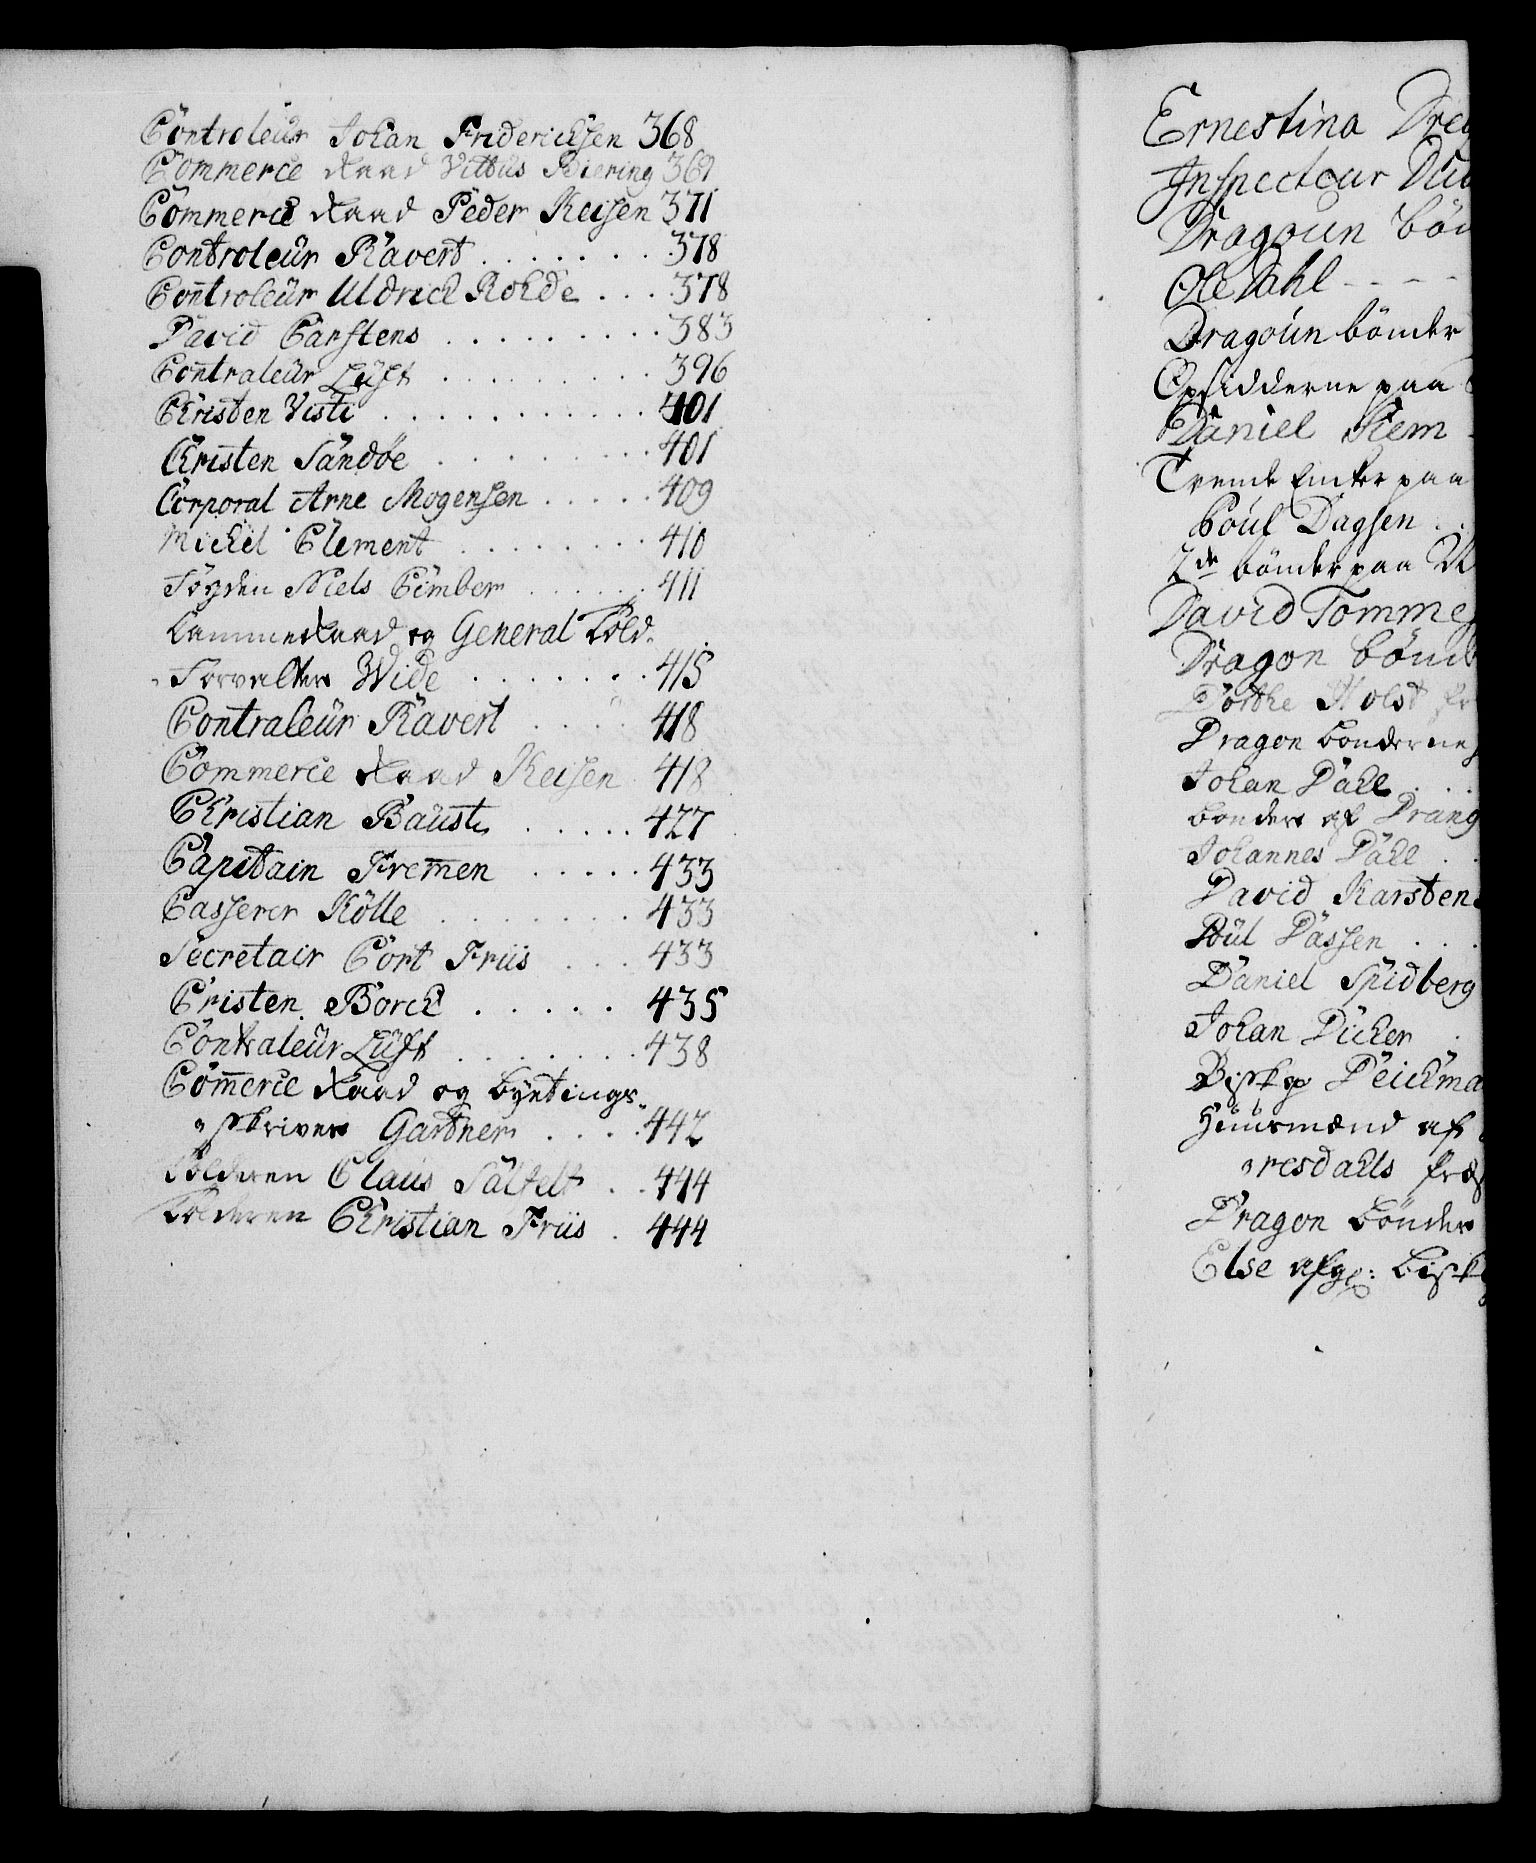 Controleur Johan Friderichsen 368
Commerce Raad Vitus Biering 369
Commerce Raad Peder Keisen 371
Controleur Ravert . . . . . . . 378
Controleur Uldrich Rohde . . . . 378
David Carstens . . . . . . . . 383
Contraleur Lüft . . . . . . . . . 396
Christen Visti . . . . . . . . . . . 401
Christen Sandøe . . . . . . . . 401
Corporal Arne Mogensen . . . . . 409
Michel Clement . . . . . . . . 410
Fogden Niels Cimber . . . . . . 411
Cammerraad og General Told-
Forvalter Wide . . . . . . . 415
Contraleur Ravert . . . . 418
Commerce Raad Keisen . 418
Christian Baust . . . . . 427
Capitain Fremen . . . . . 433
Casserer Kölle . . . . . . . . 433
Secretair Cort Friis . . . 433
Cristen Borch . . . . . 435
Contraleur Lüft . . . . . . . 438
Commerce Raad og byetings-
skriver Gartner . . . . 442
Tolderen Claus 444
Tolderen Christian Friis . 444
Ernestina
Inspecteur
Dragoun
Ole Dahl - - - -
Dragoun bønder
Opsidderne paa
Daniel
Trende Enker paa
Poul Dagsen . .
2de bønder paa
David
Dragon
Dorthe Holst
Dragon bønderne
Johan Dahl . . .
bønder af Drang
Johannes Dahl . .
David Karsten
Poul Dassen . . .
Daniel Spidberg
Johan Dicher .
Biskop Deichma
Huusmænd af
resdahls
Dragon bønder
Else afg: bisk